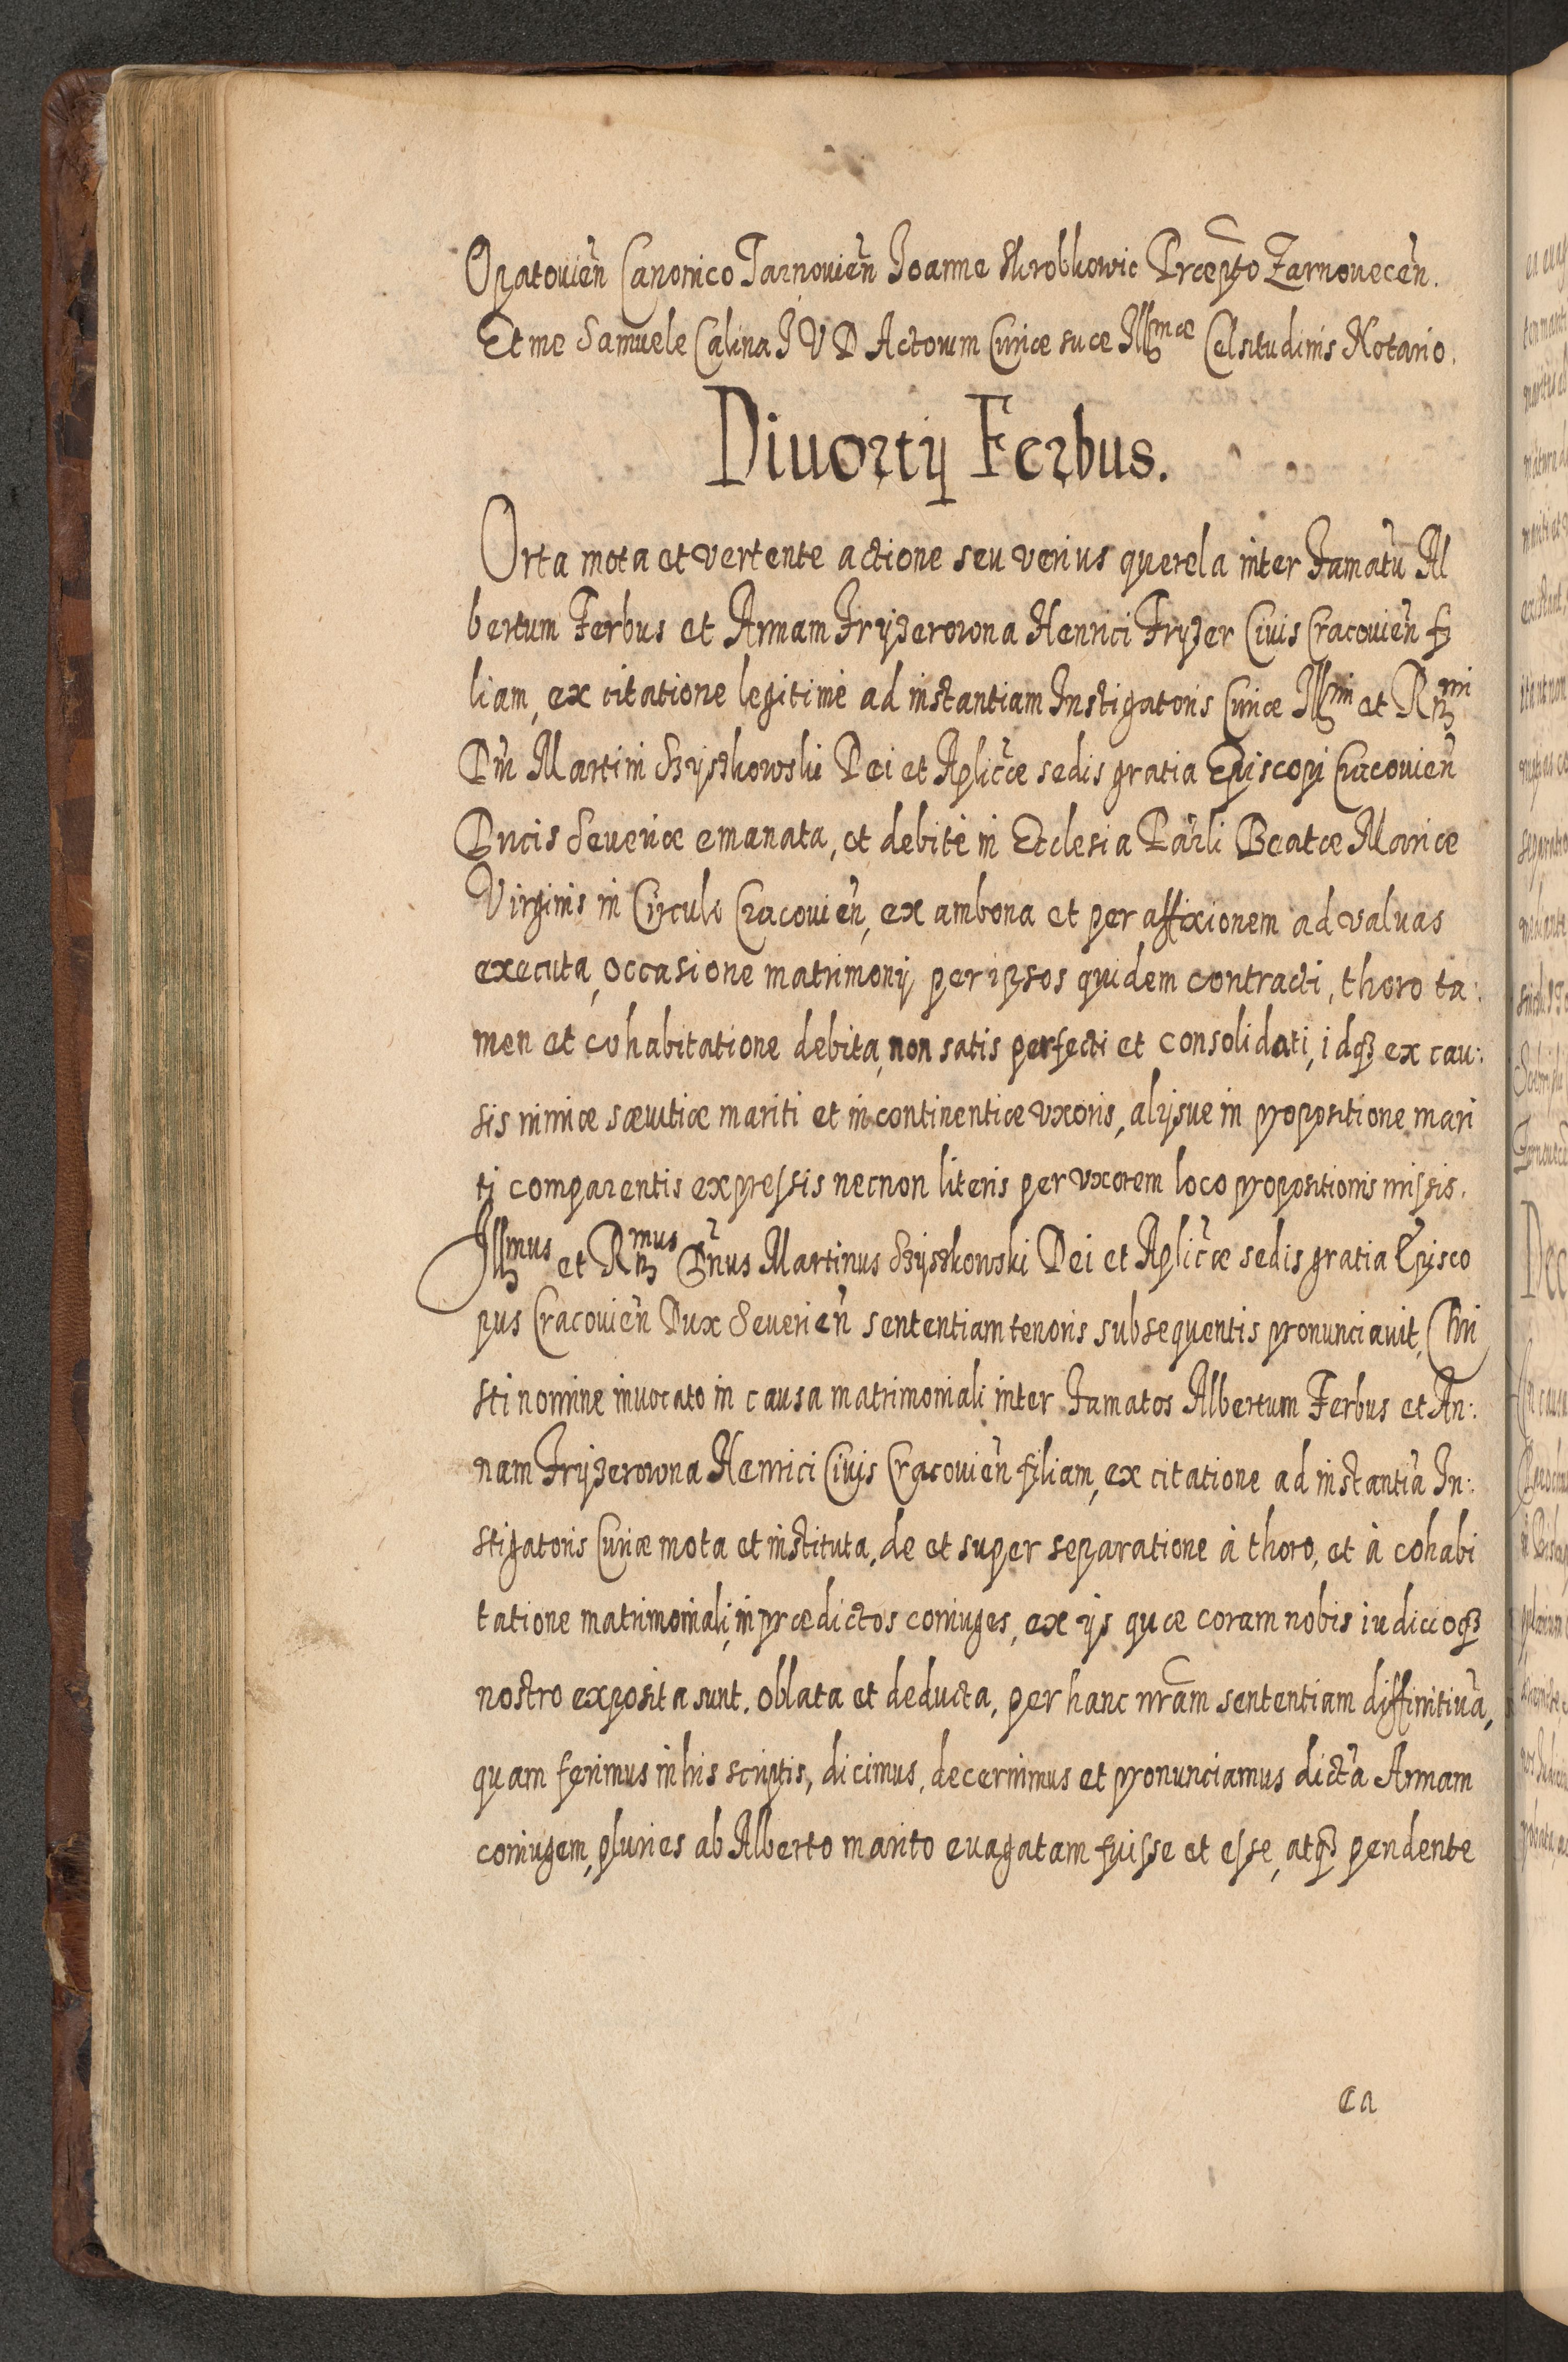 Opatovien̄ Canonico Tarnovien̄ Joanne Skrobkowic Prcep̄to Zarnovecen̄.
Et me Samuele Calina J V D Actorum Curiæ suæ Illmæ Celsitudinis Notario.
Divortij Ferbus.
Orta mota et vertente actione seu verius querela inter Famatū Al
bertum Ferbus et Annam Fryzerowna Henrici Fryzer Civis Cracovien̄ fi
liam, ex citatione legitimè ad instantiam Instigatoris Curiæ Illmi et Rmi
Dn̄i Martini Szyszkowski Dei et Aplicæ sedis gratia Episcopi Cracovien̄
Ducis Severiæ emanata, et debitè in Ecclesia Par̄li Beatæ Mariæ
Virginis in Circulo Cracovien̄, ex ambona et per affixionem ad valvas
executa, occasione matrimonij per ipsos quidem contracti, thoro ta:
men et cohabitatione debita, non satis perfecti et consolidati, idq3 ex cau:
sis nimiæ sævitiæ mariti et incontinentiæ vxoris, alijsve in propositione mari
ti comparentis expressis necnon literis per vxorem loco propositionis missis.
Illmus et Rmus Dn̄us Martinus Szyszkowski Dei et Aplicæ sedis gratia Episco
pus Cracovien̄ Dux Severien̄ sententiam tenoris subsequentis pronunciavit, Chri
sti nomine invocato in causa matrimoniali inter Famatos Albertum Ferbus et An:
nam Fryzerowna Henrici Civis Cracovien̄ filiam, ex citatione ad instantiā In:
stigatoris Curiæ mota et instituta, de et super separatione à thoro, et à cohabi
tatione matrimoniali, in prædictos coniuges, ex ijs quæ coram nobis iudicioq3
nostro exposita sunt. oblata et deducta, per hanc nr̄am sententiam diffinitivā,
quam ferimus in his scriptis, dicimus, decernimus et pronunciamus dictā Annam
coniugem, pluries ab Alberto marito evagatam fuisse et esse, atq3 pendente
ea